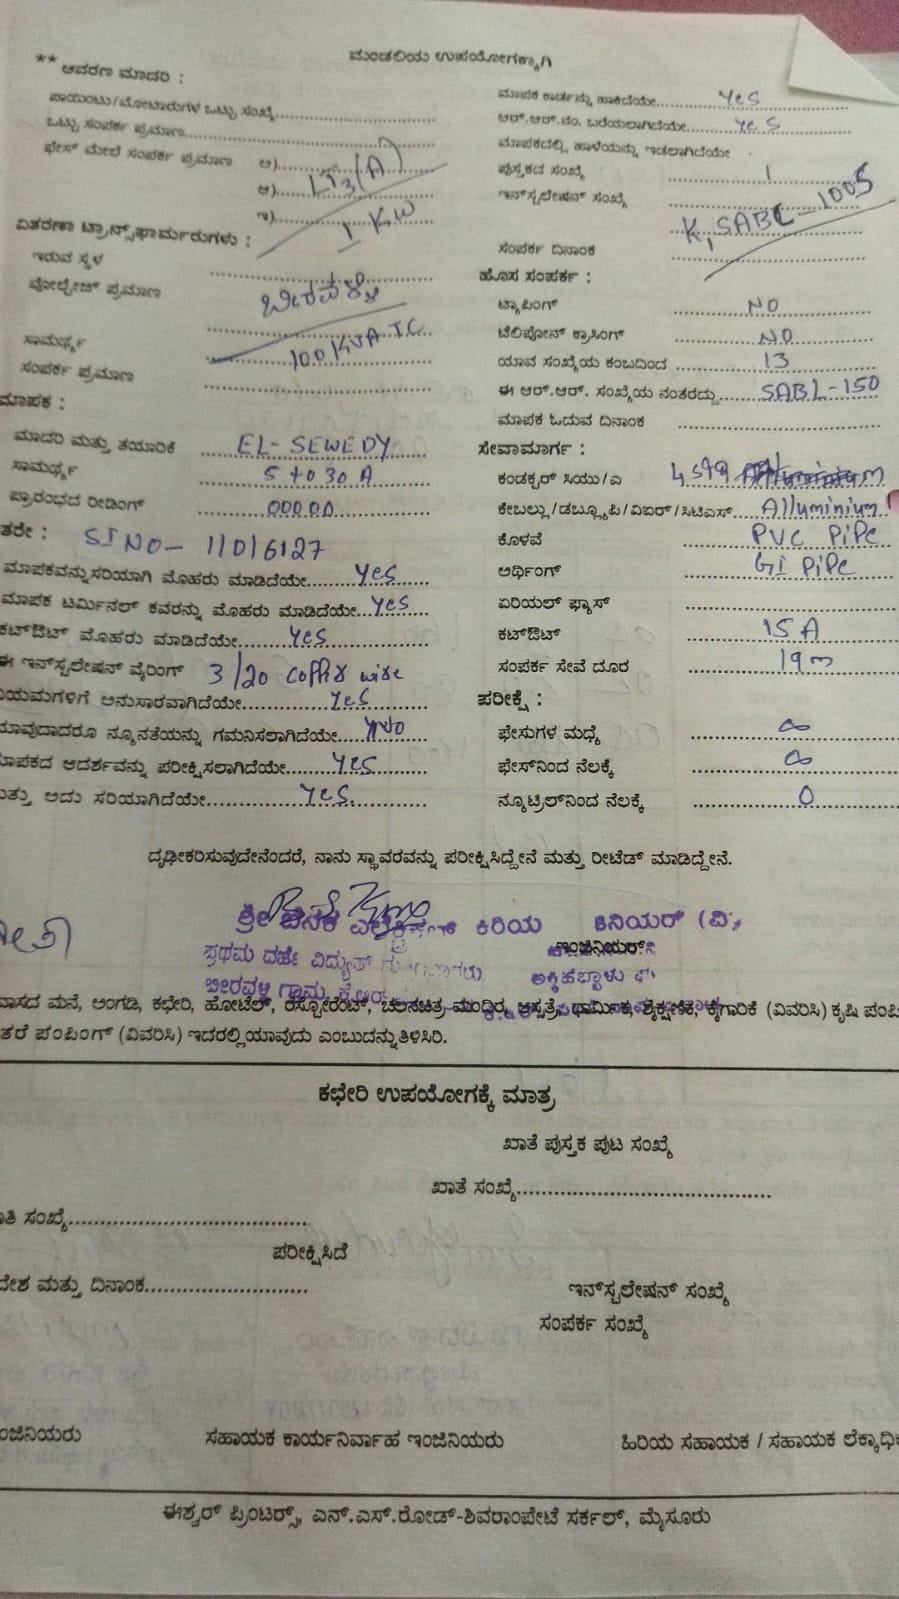 ಮಂಡಲಿಯ ಉಪಯೋಗಕ್ಕಾಗಿ
** ಆವರಣ ಮಾದರಿ :
ಪಾಯಿಂಟು/ಮೋಟಾರುಗಳ ಒಟ್ಟು ಸಂಖ್ಯೆ
ಒಟ್ಟು ಸಂಪರ್ಕ ಪ್ರಮಾಣ
ಫೇಸ್ ಮೇಲೆ ಸಂಪರ್ಕ ಪ್ರಮಾಣ ಅ)
ಆ) LT3 (A)
ಇ) 1 KW
ವಿತರಣಾ ಟ್ರಾನ್ಸ್‌ಫಾರ್ಮರುಗಳು :
ಇರುವ ಸ್ಥಳ
ವೋಲ್ಟೇಜ್ ಪ್ರಮಾಣ ಬೀರವಳ್ಳಿ
ಸಾಮರ್ಥ್ಯ 100 KVA TC
ಸಂಪರ್ಕ ಪ್ರಮಾಣ
ಮಾಪಕ :
ಮಾದರಿ ಮತ್ತು ತಯಾರಿಕೆ EL- SEWEDY
ಸಾಮರ್ಥ್ಯ 5 to 30 A
ಪ್ರಾರಂಭದ ರೀಡಿಂಗ್ 00000
ತರೇ : SI NO- 11016127
ಮಾಪಕವನ್ನು ಸರಿಯಾಗಿ ಮೊಹರು ಮಾಡಿದೆಯೇ Yes
ಮಾಪಕ ಟರ್ಮಿನಲ್ ಕವರನ್ನು ಮೊಹರು ಮಾಡಿದೆಯೇ Yes
ಕಟ್‌ಔಟ್ ಮೊಹರು ಮಾಡಿದೆಯೇ Yes
ಈ ಇನ್‌ಸ್ಟಲೇಷನ್ ವೈರಿಂಗ್ 3/20 Coffer wire
ಯಮಗಳಿಗೆ ಅನುಸಾರವಾಗಿದೆಯೇ Yes
ಯಾವುದಾದರೂ ನ್ಯೂನತೆಯನ್ನು ಗಮನಿಸಲಾಗಿದೆಯೇ No
ಮಾಪಕದ ಆದರ್ಶವನ್ನು ಪರೀಕ್ಷಿಸಲಾಗಿದೆಯೇ Yes
ಮತ್ತು ಅದು ಸರಿಯಾಗಿದೆಯೇ Yes.
ಮಾಪಕ ಕಾರ್ಡನ್ನು ಹಾಕಿದೆಯೇ Yes
ಆರ್.ಆರ್.ನಂ. ಬರೆಯಲಾಗಿದೆಯೇ Yes
ಮಾಪಕದಲ್ಲಿ ಹಾಳೆಯನ್ನು ಇಡಲಾಗಿದೆಯೇ
ಪುಸ್ತಕದ ಸಂಖ್ಯೆ 1
ಇನ್‌ಸ್ಟಲೇಷನ್ ಸಂಖ್ಯೆ K, SABL-1005
ಸಂಪರ್ಕ ದಿನಾಂಕ
ಹೊಸ ಸಂಪರ್ಕ :
ಟ್ಯಾಪಿಂಗ್ NO
ಟೆಲಿಪೋನ್ ಕ್ರಾಸಿಂಗ್ NO
ಯಾವ ಸಂಖ್ಯೆಯ ಕಂಬದಿಂದ 13
ಈ ಆರ್.ಆರ್. ಸಂಖ್ಯೆಯ ನಂತರದ್ದು SABL-150
ಮಾಪಕ ಓದುವ ದಿನಾಂಕ
ಸೇವಾಮಾರ್ಗ :
ಕಂಡಕ್ಟರ್ ಸಿಯು/ಎ 4 sta
ಕೇಬಲ್ಲು/ಡಬ್ಲ್ಯೂಪಿ/ವಿಐಆರ್/ಸಿಟಿಎಸ್ Alluminium
ಕೊಳವೆ PVC PiPe
ಅರ್ಥಿಂಗ್ GI PiPe
ಏರಿಯಲ್ ಫ್ಯೂಸ್
ಕಟ್‌ಔಟ್ 15 A
ಸಂಪರ್ಕ ಸೇವೆ ದೂರ 19 m
ಪರೀಕ್ಷೆ :
ಫೇಸುಗಳ ಮಧ್ಯೆ ∞
ಫೇಸ್‌ನಿಂದ ನೆಲಕ್ಕೆ ∞
ನ್ಯೂಟ್ರಲ್‌ನಿಂದ ನೆಲಕ್ಕೆ 0
ದೃಢೀಕರಿಸುವುದೇನೆಂದರೆ, ನಾನು ಸ್ಥಾವರವನ್ನು ಪರೀಕ್ಷಿಸಿದ್ದೇನೆ ಮತ್ತು ರೀಟೆಡ್ ಮಾಡಿದ್ದೇನೆ.
ಶ್ರೀ ಕಿರಿಯ
ಪ್ರಥಮ ದರ್ಜೆ ವಿದ್ಯುತ್ ಇಂಜಿನಿಯರ್
ಬೀರವಳ್ಳಿ ಗ್ರಾಮ ಅಕ್ಕಿಹೆಬ್ಬಾಳು
ವಾಸದ ಮನೆ, ಅಂಗಡಿ, ಕಛೇರಿ, ಹೋಟೆಲ್, ರೆಸ್ಟೋರೆಂಟ್, ಚಲನಚಿತ್ರ ಮಂದ್ದಿರ, ಆಸ್ಪತ್ರೆ, ಧಾರ್ಮಿಕ, ಶೈಕ್ಷಣಿಕ, ಕೈಗಾರಿಕೆ (ವಿವರಿಸಿ) ಕೃಷಿ ಪಂಪಿ
ತರೆ ಪಂಪಿಂಗ್ (ವಿವರಿಸಿ) ಇದರಲ್ಲಿ ಯಾವುದು ಎಂಬುದನ್ನು ತಿಳಿಸಿರಿ.
ಕಛೇರಿ ಉಪಯೋಗಕ್ಕೆ ಮಾತ್ರ
ಖಾತೆ ಪುಸ್ತಕ ಪುಟ ಸಂಖ್ಯೆ
ಖಾತೆ ಸಂಖ್ಯೆ
ತಿ ಸಂಖ್ಯೆ
ಪರೀಕ್ಷಿಸಿದೆ
ದೇಶ ಮತ್ತು ದಿನಾಂಕ
ಇನ್‌ಸ್ಟಲೇಷನ್ ಸಂಖ್ಯೆ
ಸಂಪರ್ಕ ಸಂಖ್ಯೆ
ಂಜಿನಿಯರು ಸಹಾಯಕ ಕಾರ್ಯನಿರ್ವಾಹ ಇಂಜಿನಿಯರು ಹಿರಿಯ ಸಹಾಯಕ / ಸಹಾಯಕ ಲೆಕ್ಕಾಧಿಕ
ಈಶ್ವರ್ ಪ್ರಿಂಟರ್‍ಸ್, ಎನ್.ಎಸ್.ರೋಡ್-ಶಿವರಾಂಪೇಟೆ ಸರ್ಕಲ್, ಮೈಸೂರು